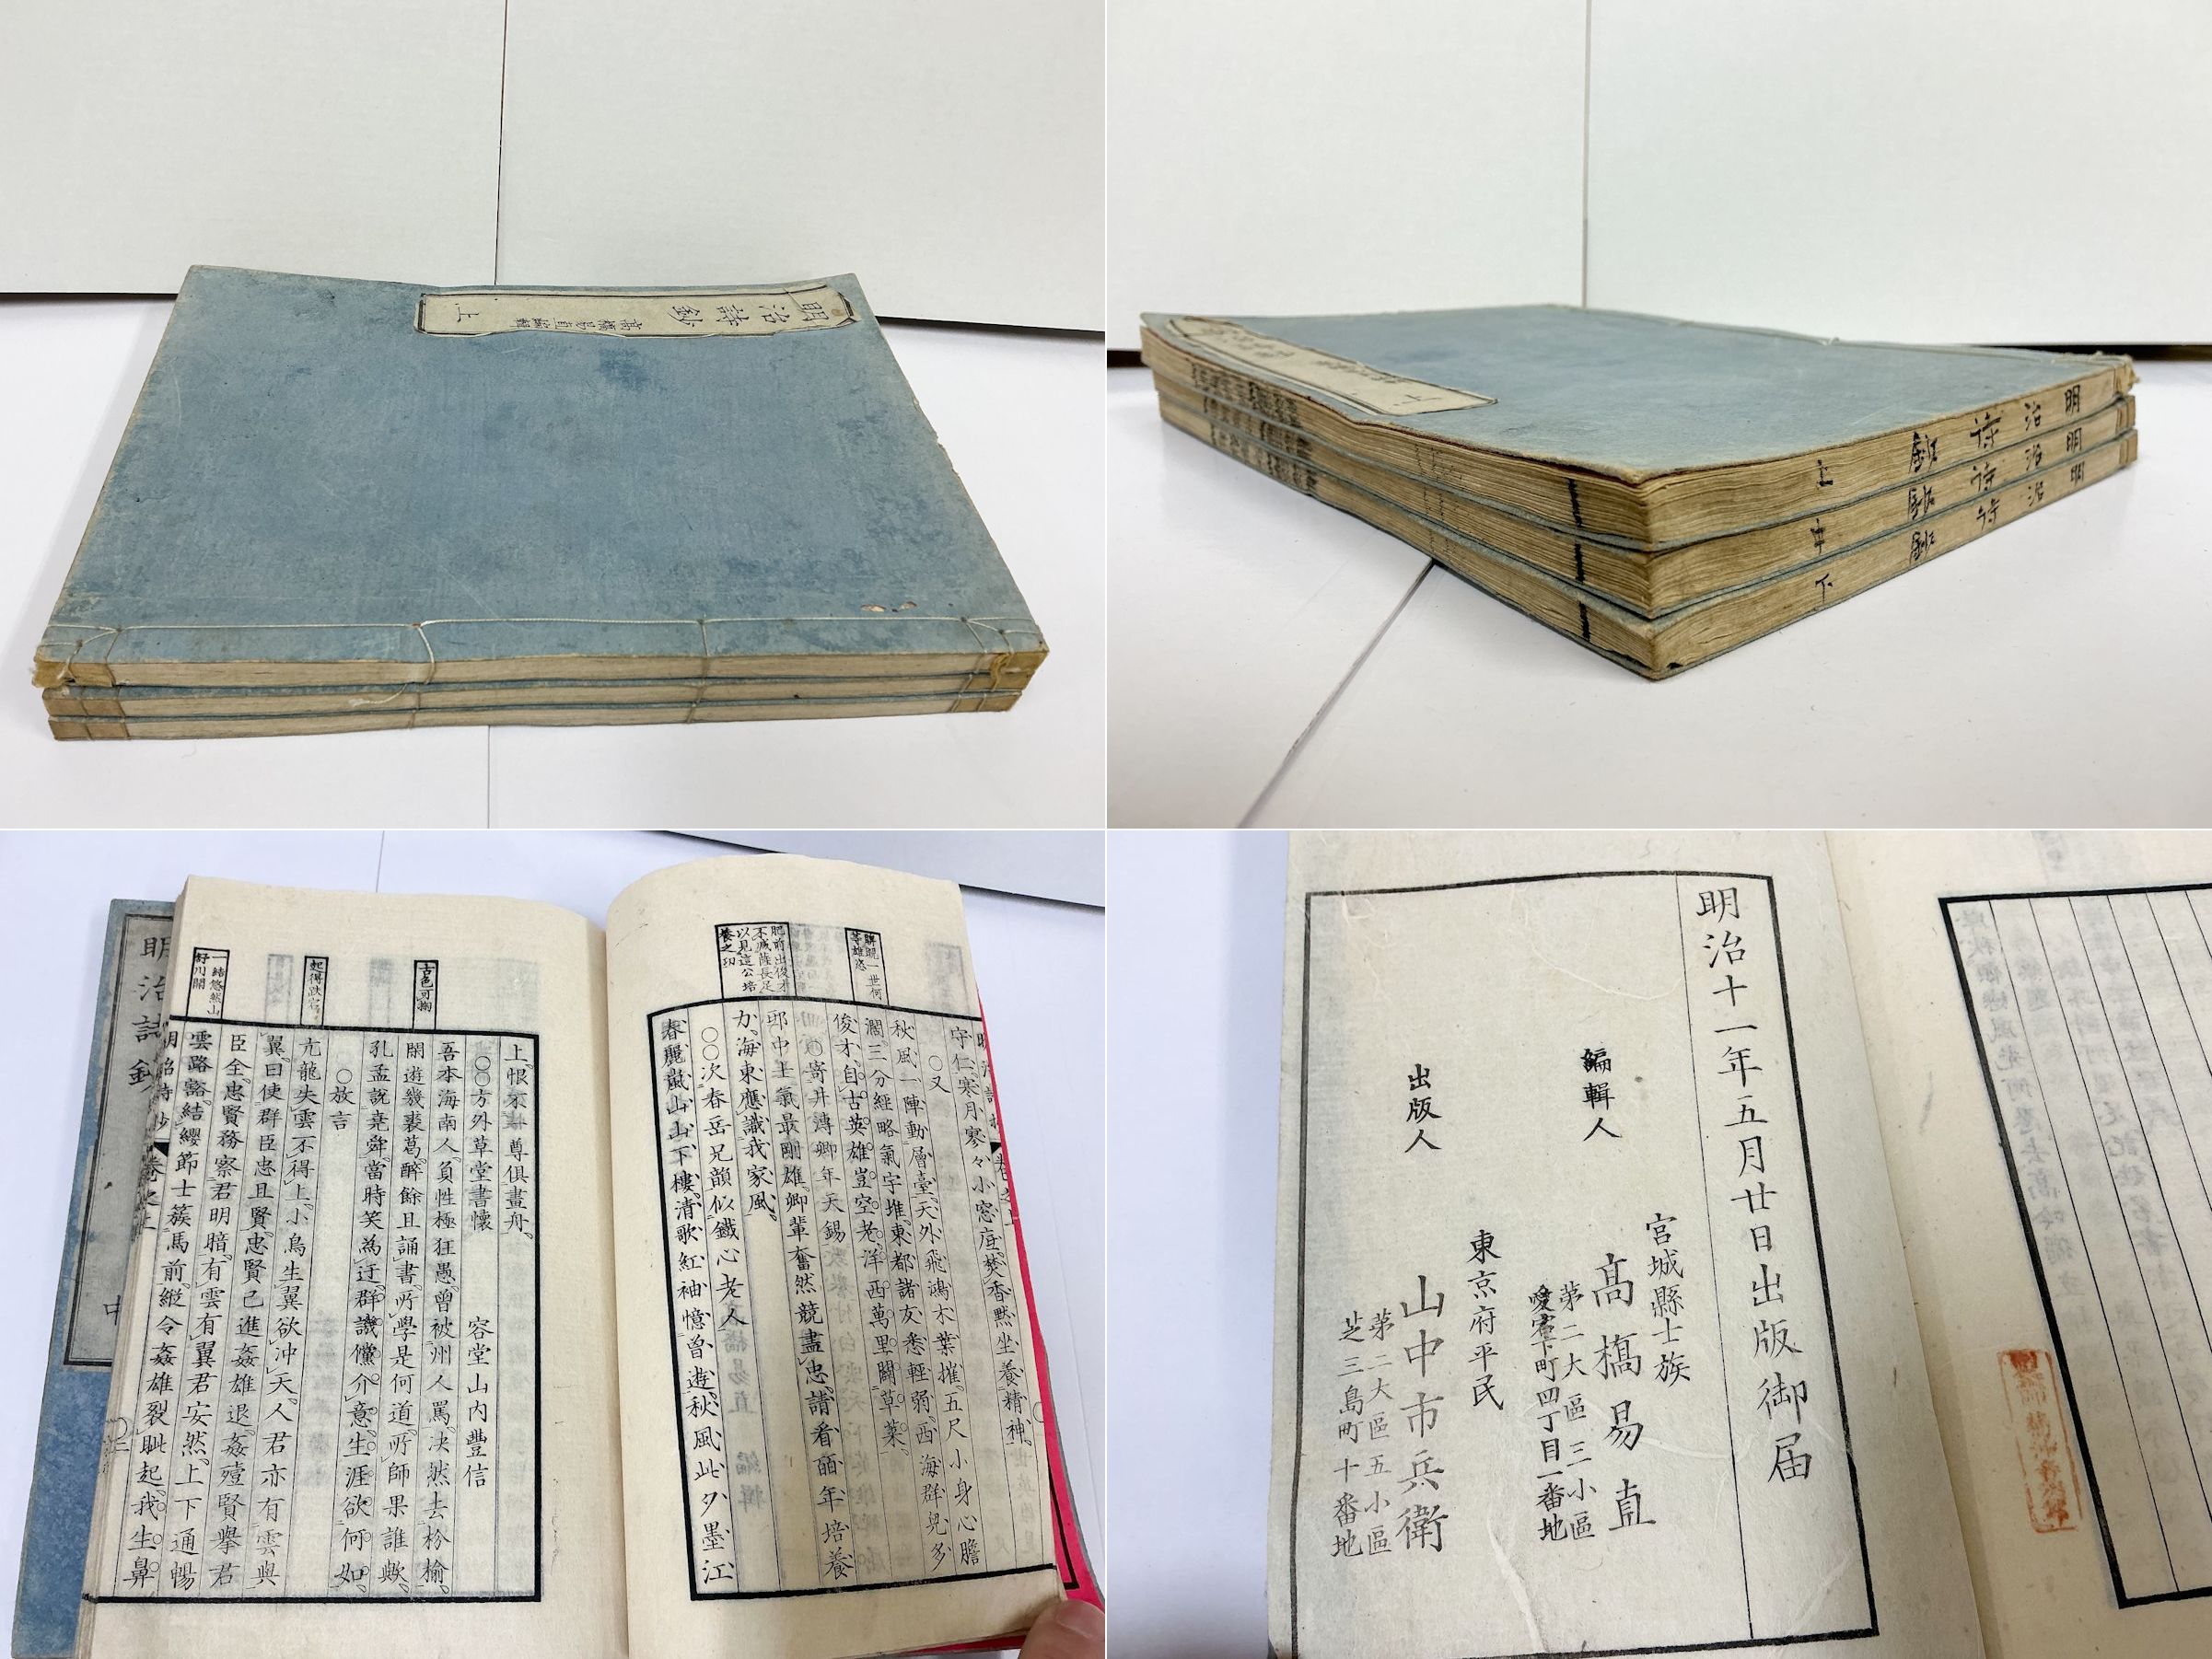 明治詩鈔
高橋易直編輯
上
明治詩鈔 上
明治詩鈔 中
明治詩鈔 下
睥睨一世何
等雄悠
肥前出俊才
不減薩長足
以見這公培
養之功
守仁寒月寥々小窓虛焚香默坐養精神
〇又
秋風一陣動層臺天外飛鴻木葉摧五尺小身心膽
濶三分經略氣宇堆東都諸友悉輕弱西海群兒多
俊才自古英雄豈空老洋西萬里闢草萊
〇寄井溥卿年天錫
郢中王氣最剛雄卿輩奮然競盡忠請看百年培養
力海東應識我家風
〇〇次春岳兄韻似鐵心老人
春麗嵐山山下樓清歌紅袖憶曾遊秋風此夕墨江
古色可掬
起得跌宕
一結悠然山
舒川開
上恨不共尊俱畫舟
〇〇方外草堂書懷 容堂山內豐信
吾本海南人負性極狂愚曾被州人罵决然去枌榆
閑遊幾裘葛醉餘且誦書所學是何道所師果誰歟
孔孟說堯舜當時笑為迂群譏儻介意生涯欲何如
〇放言
亢龍失雲不得上小鳥生翼欲冲天人君亦有雲與
翼曰使群臣忠且賢忠賢已進姦雄退姦殪賢擧君
臣全忠賢務察君明暗有雲有翼君安然上下通暢
雲路豁結纓節士蔟馬前縱令姦雄裂眦起我生鼻
明治詩鈔 卷之上
明治詩鈔
中
明治十一年五月廿日出版御届
宮城縣士族
編輯人 高橋易直
第二大區三小區
愛宕下町四丁目一番地
東京府平民
出版人 山中市兵衛
第二大區五小區
芝三島町十番地